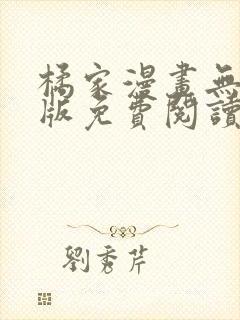 橘家漫畫無
版免費閱讀
劉秀芹